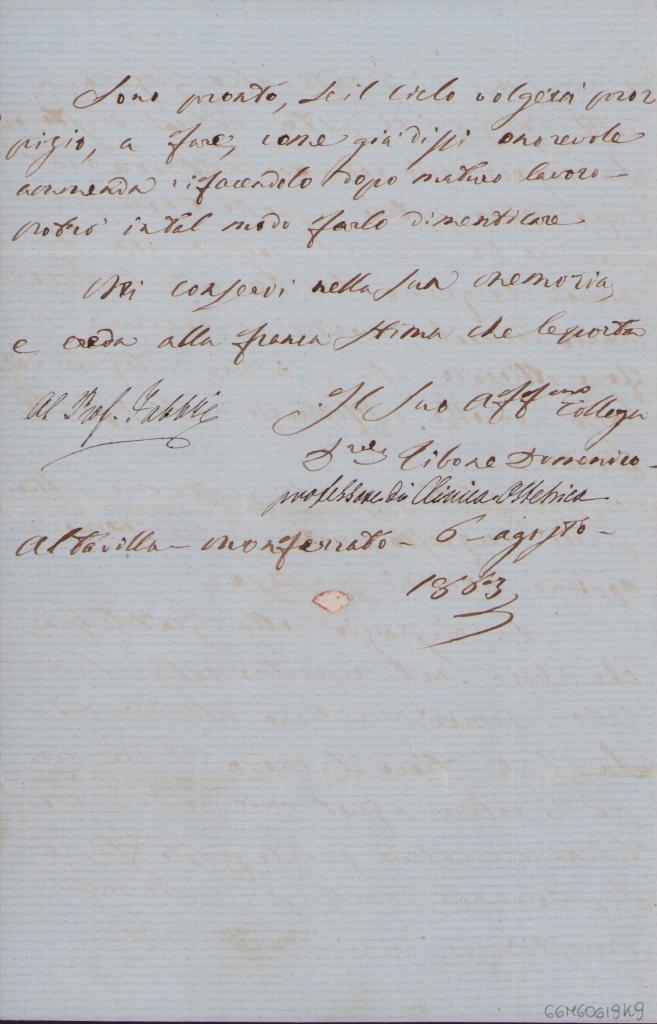 Sono pronto, se il cielo volgerà pro
pizio, a fare, come già dissi onorevole
ammenda rifacendolo dopo maturo lavoro -
potrò in tal modo farlo dimenticare
Mi conservi nella sua memoria,
e creda alla franca stima che le porta
Al Prof. Fabbri
Il Suo Aff.mo Collega
D.re Tibone Domenico -
professore di Clinica Ostetrica
Altavilla - Monferrato - 6 - agosto -
1863
66M60619K9